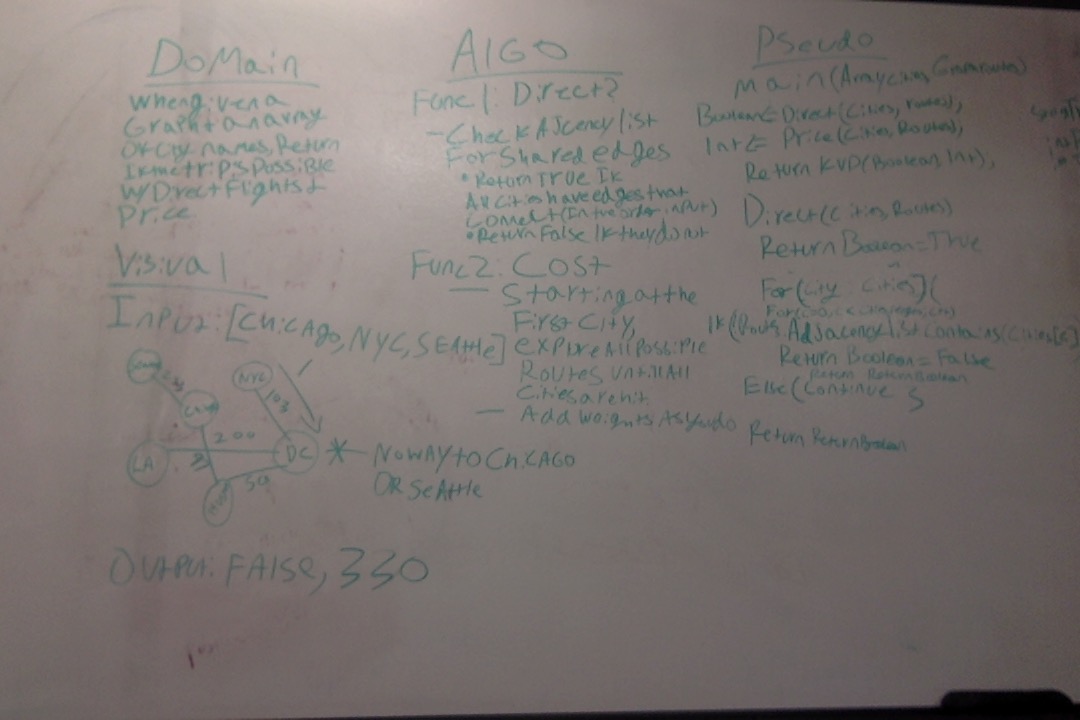 DoMain
When given a
Graph + an array
Of City names, Return
If the trip is possible
w/ Direct Flights +
Price
Visual
Input: [Chicago, NYC, SEAttle]
NYC
103
200
LA
DC
50
* NoWAY to CHiCAGO
OR SeAttle
OUtPUt: FAlse, 330
AlGO
Func 1: Direct?
- Check AJcency list
For Shared edges
• Return True If
All Cities have edges that
Connect (In the order input)
• Return False If they do not
Func 2: COSt
- Starting at the
First City,
explore All Possible
Routes until All
Cities are hit
- Add weights As you do
PSeudo
main(Array cities, Graph routes)
Boolean <= Direct(Cities, routes),
Int <= Price(Cities, Routes),
Return KVP(Boolean, Int),
Direct(Cities, Routes)
Return Boolean = True
For(City : Cities){
If(Routes.Adjacencylist contains(Cities[i]
Return Boolean = False
Return ReturnBoolean
Else(Continue
Return ReturnBoolean